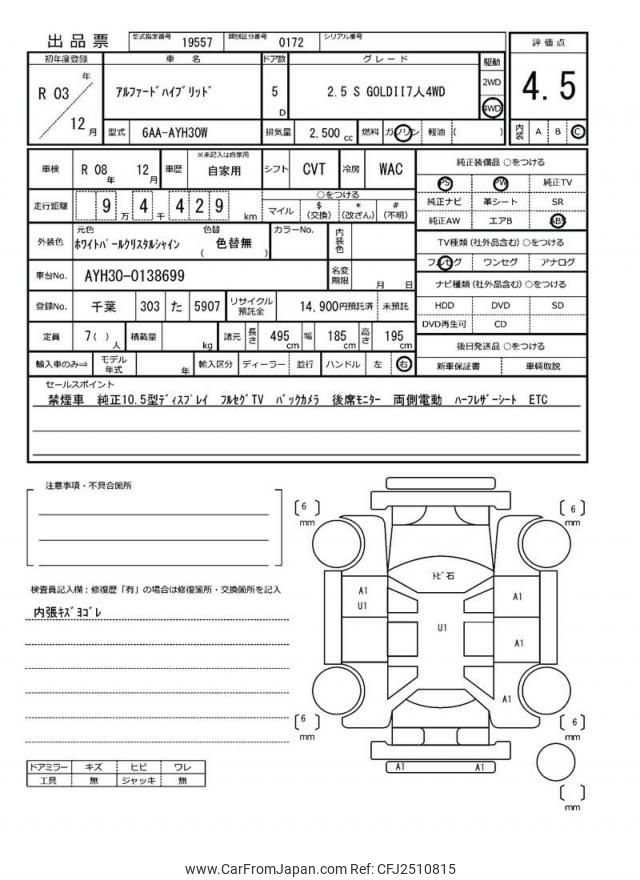 出品票 型式指定番号 19557 類別区分番号 0172 シリアル番号
初年度登録 車名 ドア数 グレード 駆動 評価点
R 03 年 12 月 アルファードハイブリッド 5 D 2.5 S GOLDII7人4WD 2WD 4WD 4.5
型式 6AA-AYH30W 排気量 2.500 cc 燃料 ガソリン 軽油 ( ) 内装 A B C
車検 R 08 年 12 月 車歴 ※未記入は自家用 自家用 シフト CVT 冷房 WAC 純正装備品 ○をつける
走行距離 9 万 4 千 4 2 9 km ○をつける マイル $ (交換) * (改ざん) # (不明)
PS PW 純正TV
純正ナビ 革シート SR
純正AW エアB ABS
外装色 元色 ホワイトパールクリスタルシャイン 色替 ( 色替無 ) カラーNo. 内装色
TV種類 (社外品含む) ○をつける
フルセグ ワンセグ アナログ
車台No. AYH30-0138699 名変期限 月 日
ナビ種類 (社外品含む) ○をつける
登録No. 千葉 303 た 5907 リサイクル預託金 14,900円預託済 未預託
HDD DVD SD
DVD再生可 CD
定員 7( ) 人 積載量 kg 諸元 長さ 495 cm 幅 185 cm 高さ 195 cm
後日発送品 ○をつける
輸入車のみ⇒ モデル年式 年 輸入区分 ディーラー 並行 ハンドル 左 右
新車保証書 車輌取説
セールスポイント
禁煙車 純正10.5型ディスプレイ フルセグTV バックカメラ 後席モニター 両側電動 ハーフレザーシート ETC
注意事項・不具合箇所
検査員記入欄:修復歴「有」の場合は修復箇所・交換箇所を記入
内張キズヨゴレ
6 mm
6 mm
トビ石
A1
U1
U1
A1
A1
A1
6 mm
6 mm
A1 A1
mm
ドアミラー キズ ヒビ ワレ
工具 無 ジャッキ 無
www.CarFromJapan.com Ref: CFJ2510815